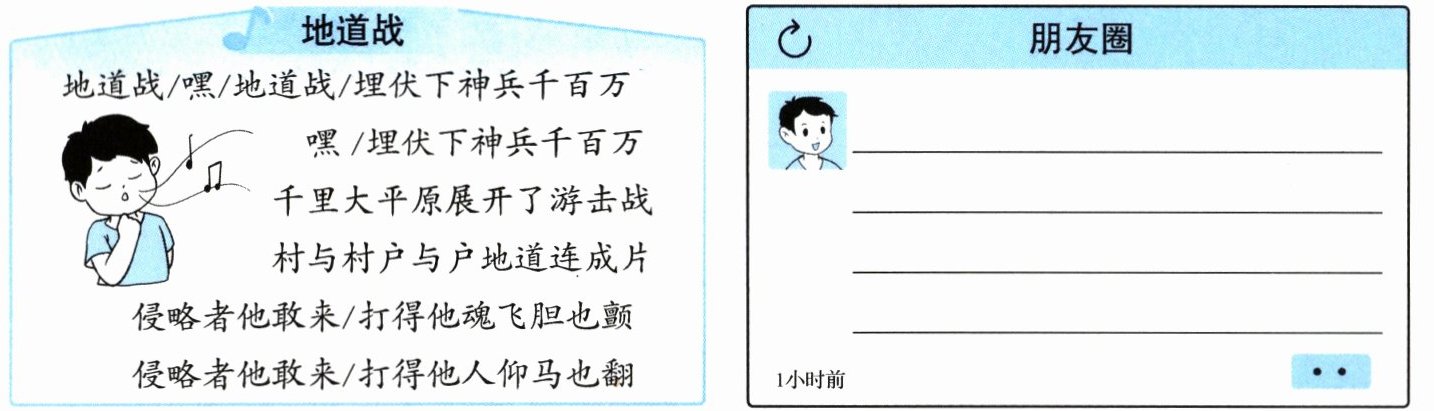 地道战
地道战/嘿/地道战/埋伏下神兵千百万
嘿/埋伏下神兵千百万
千里大平原展开了游击战
村与村户与户地道连成片
侵略者他敢来/打得他魂飞胆也颤
侵略者他敢来/打得他人仰马也翻
朋友圈
1小时前